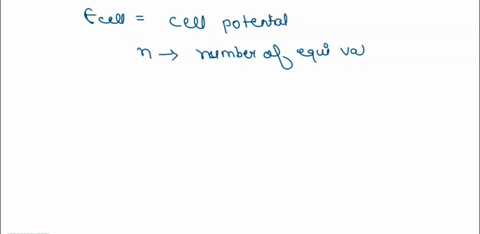 Ecell = cell potental
n → number of equi va